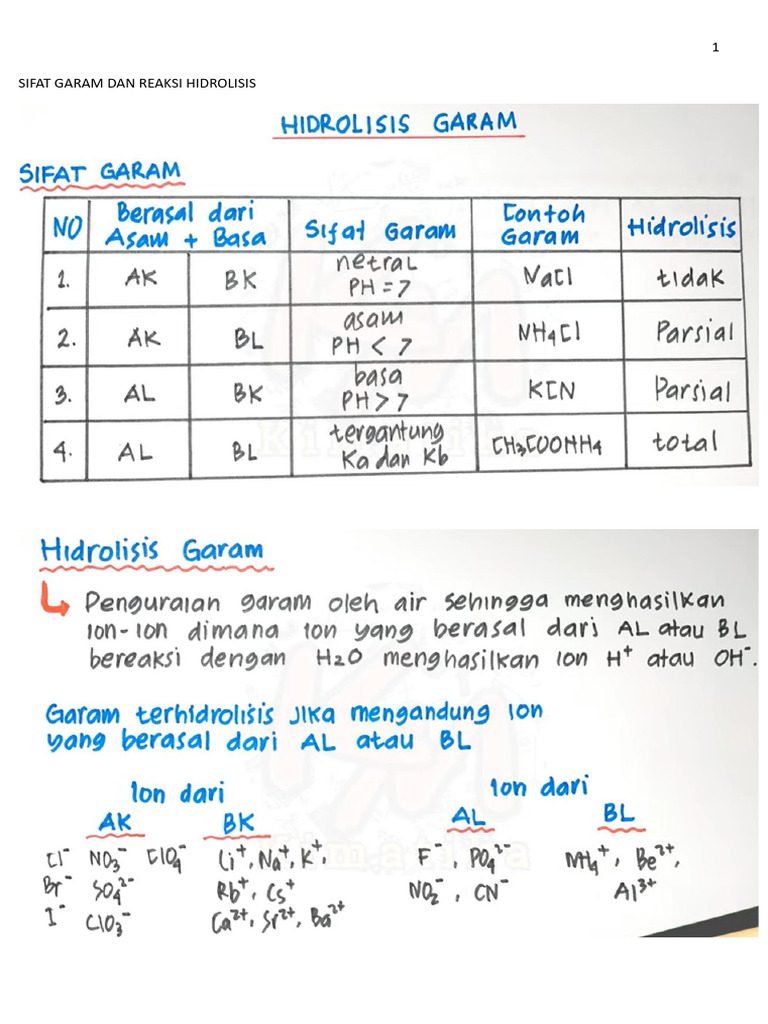 1
SIFAT GARAM DAN REAKSI HIDROLISIS
HIDROLISIS GARAM
SIFAT GARAM
NO Berasal dari Asam + Basa Sifat Garam Contoh Garam Hidrolisis
1. AK BK netral PH = 7 NaCl tidak
2. AK BL asam PH < 7 NH₄Cl Parsial
3. AL BK basa PH > 7 KCN Parsial
4. AL BL tergantung Ka dan Kb CH₃COONH₄ total
Hidrolisis Garam
↳ Penguraian garam oleh air sehingga menghasilkan
ion-ion dimana ion yang berasal dari AL atau BL
bereaksi dengan H₂O menghasilkan ion H⁺ atau OH⁻.
Garam terhidrolisis jika mengandung ion
yang berasal dari AL atau BL
Ion dari Ion dari
AK BK AL BL
Cl⁻ NO₃⁻ ClO₄⁻ Li⁺, Na⁺, K⁺ F⁻, PO₄²⁻ NH₄⁺, Be²⁺,
Br⁻ SO₄²⁻ Rb⁺, Cs⁺ NO₂⁻, CN⁻ Al³⁺
I⁻ ClO₃⁻ Ca²⁺, Sr²⁺, Ba²⁺